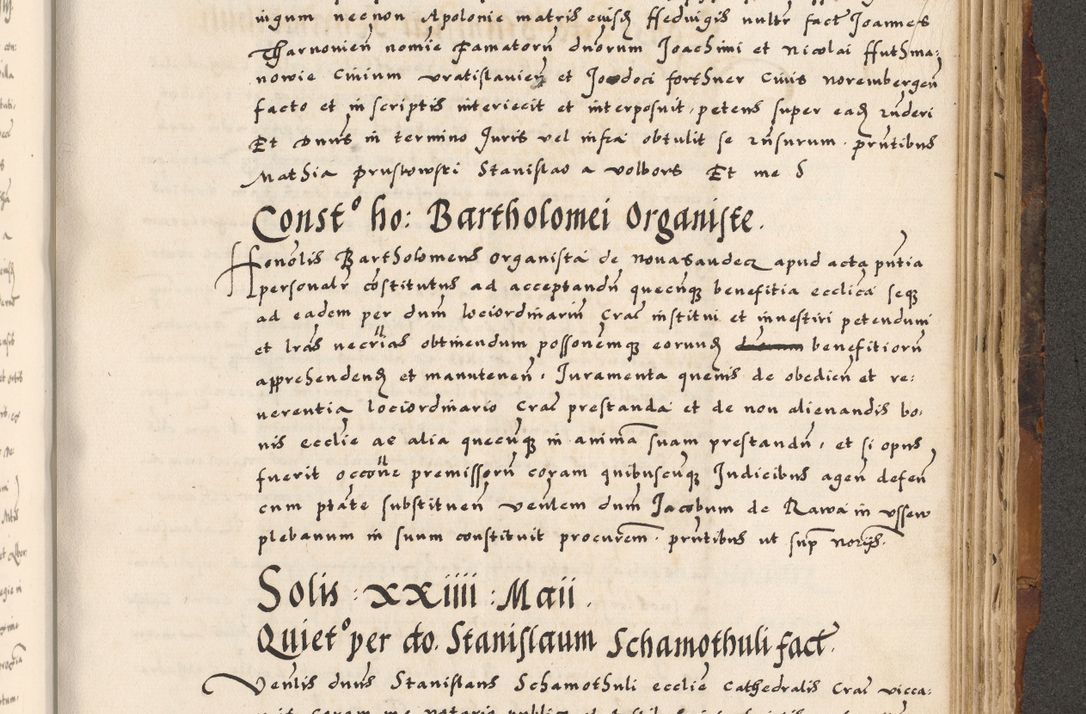 iugum necnon Apolonie matris eiusdẽ Heduigis nultr fact Joannes
Tharnovień nomie Pamatorũ dnorum Joachimi et Nicolai Huthma:
nowie Civium vratislavień et Jodoci forthner Civis norembergeñ
facto et in scriptis interiecit et interposuit, petens super eadẽ rñderi
Et Dnus in termino Juris vel infra obtulit se rñsurum. prñtibus
Mathia Pruskowski Stanislao a volbors Et me S
Const° ho: Bartholomei Organiste.
Honolis Bartholomeus organista de novasandecz apud acta pñtia
personalr cõstitutus ad acceptandũ quecũqz benefitia ecclica seqz
ad eadem per dnum lociordinariũ Crač institui et investiri petendum
et lrãs nec̃rias obtinendum possonemqz eorundẽ benefitiorũ
apprehendendẽ et manutenen̄, Juramenta quevis de obedień et re:
verentia lociordinario Crač prestanda et de non alienandis bo:
nis ecclie ac alia quecũqz in animã suam prestandũ, et si opus
fuerit occõne premissorũ coram quibuscũqz Judicibus ageñ defeñ
cum ptãte substitueñ veñlem dnum Jacobum de Rawa in vssew
plebanum in suum constituit procurem̃. prñtibus ut supᷓ noriis.
Solis : xxiiii : Maii .
Quiet° per do. Stanislaum Schamothuli fact.
Veñlis dnus Stanislaus Schamothuli ecclie Cathedralis Crač vicca: